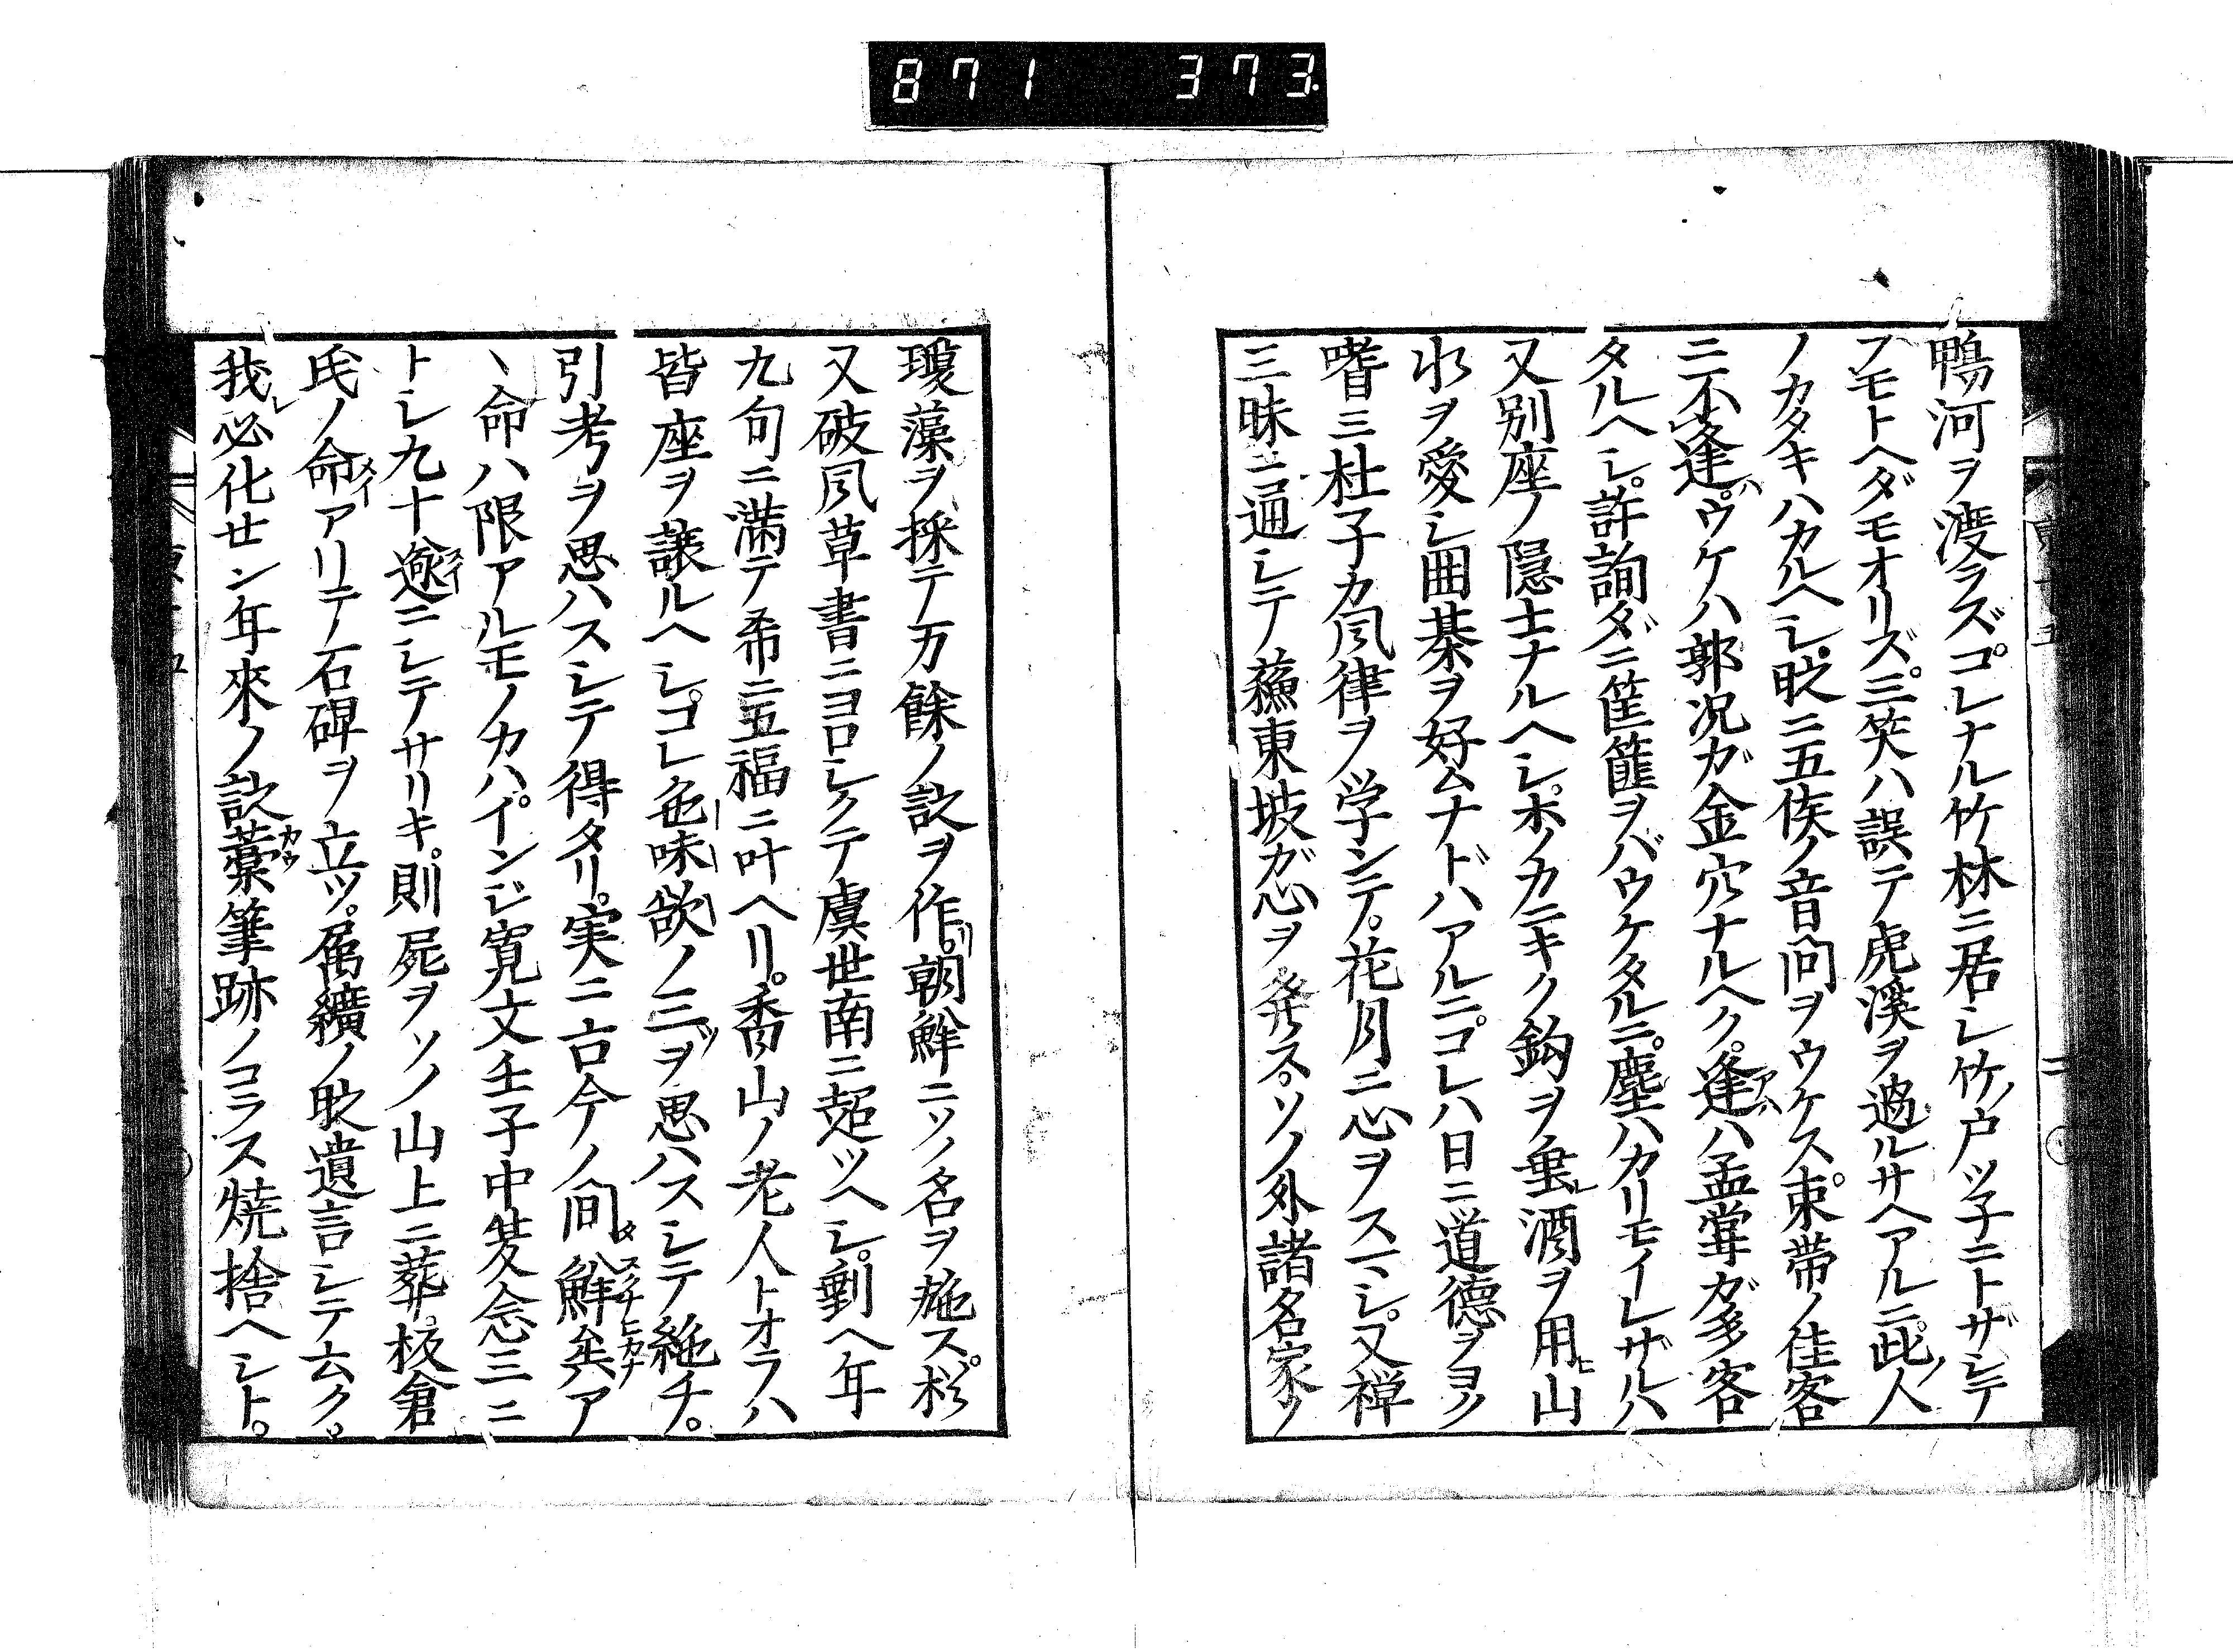 871 373
鴨河ヲ渡ラズ。コレナル竹林ニ居シ竹ノ戸ツ子ニトザシテ
フモトヘダモオリズ。三笑ハ誤テ虎溪ヲ過ルサヘアルニ。此人
ノカタキハカルヘシ。時ニ五侯ノ音問ヲウケス。束帯ノ佳客
ニ不逢。ウケハ郭況ガ金穴ナルヘク。逢ハ孟甞ガ多客
タルヘシ。許詢ダニ筐篚ヲバウケタルニ。塵ハカリモイレザルハ
又別座ノ隠士ナルヘシ。ホノカニキク鈎ヲ垂レ酒ヲ用ヒ山
水ヲ愛シ囲碁ヲ好ムナドハアルニ。コレハ日ニ道德ヲヨク
嗜ミ杜子カ風律ヲノ学ンテ。花月ニ心ヲスマシ。又禅
三昧ニ通シテノ蘓東坡ガ心ヲ発ス。ソノ外諸名家ノ
瓊藻ヲ採テ万餘ノ詩ヲ作リ。朝鮮ニソノ名ヲ施ス。
又破風草書ニヨロシクテ虞世南ニ超ツヘシ。剰ヘ年
九旬ニ満テ希ニ五福ニ叶ヘリ。香山ノ老人トオラハ
皆座ヲ譲ルヘシ。コレ色味欲ノ三ツヲ思ハスシテ絶チ。
引考ヲ思ハスシテ得タリ。実ニ古今ノ間タ鮮矣ア
丶命ハ限アルモノカハ。インジ寛文壬子中夏念三ニ
トシ九十歳ニシテサリキ。則屍ヲソノ山上ニ葬。板倉
氏ノ命アリテ石碑ヲ立ツ。属纊ノ時遺言シテ云ク。
我レ必化セン年來ノ詩藁筆跡ノコラス燒捨ヘシト。